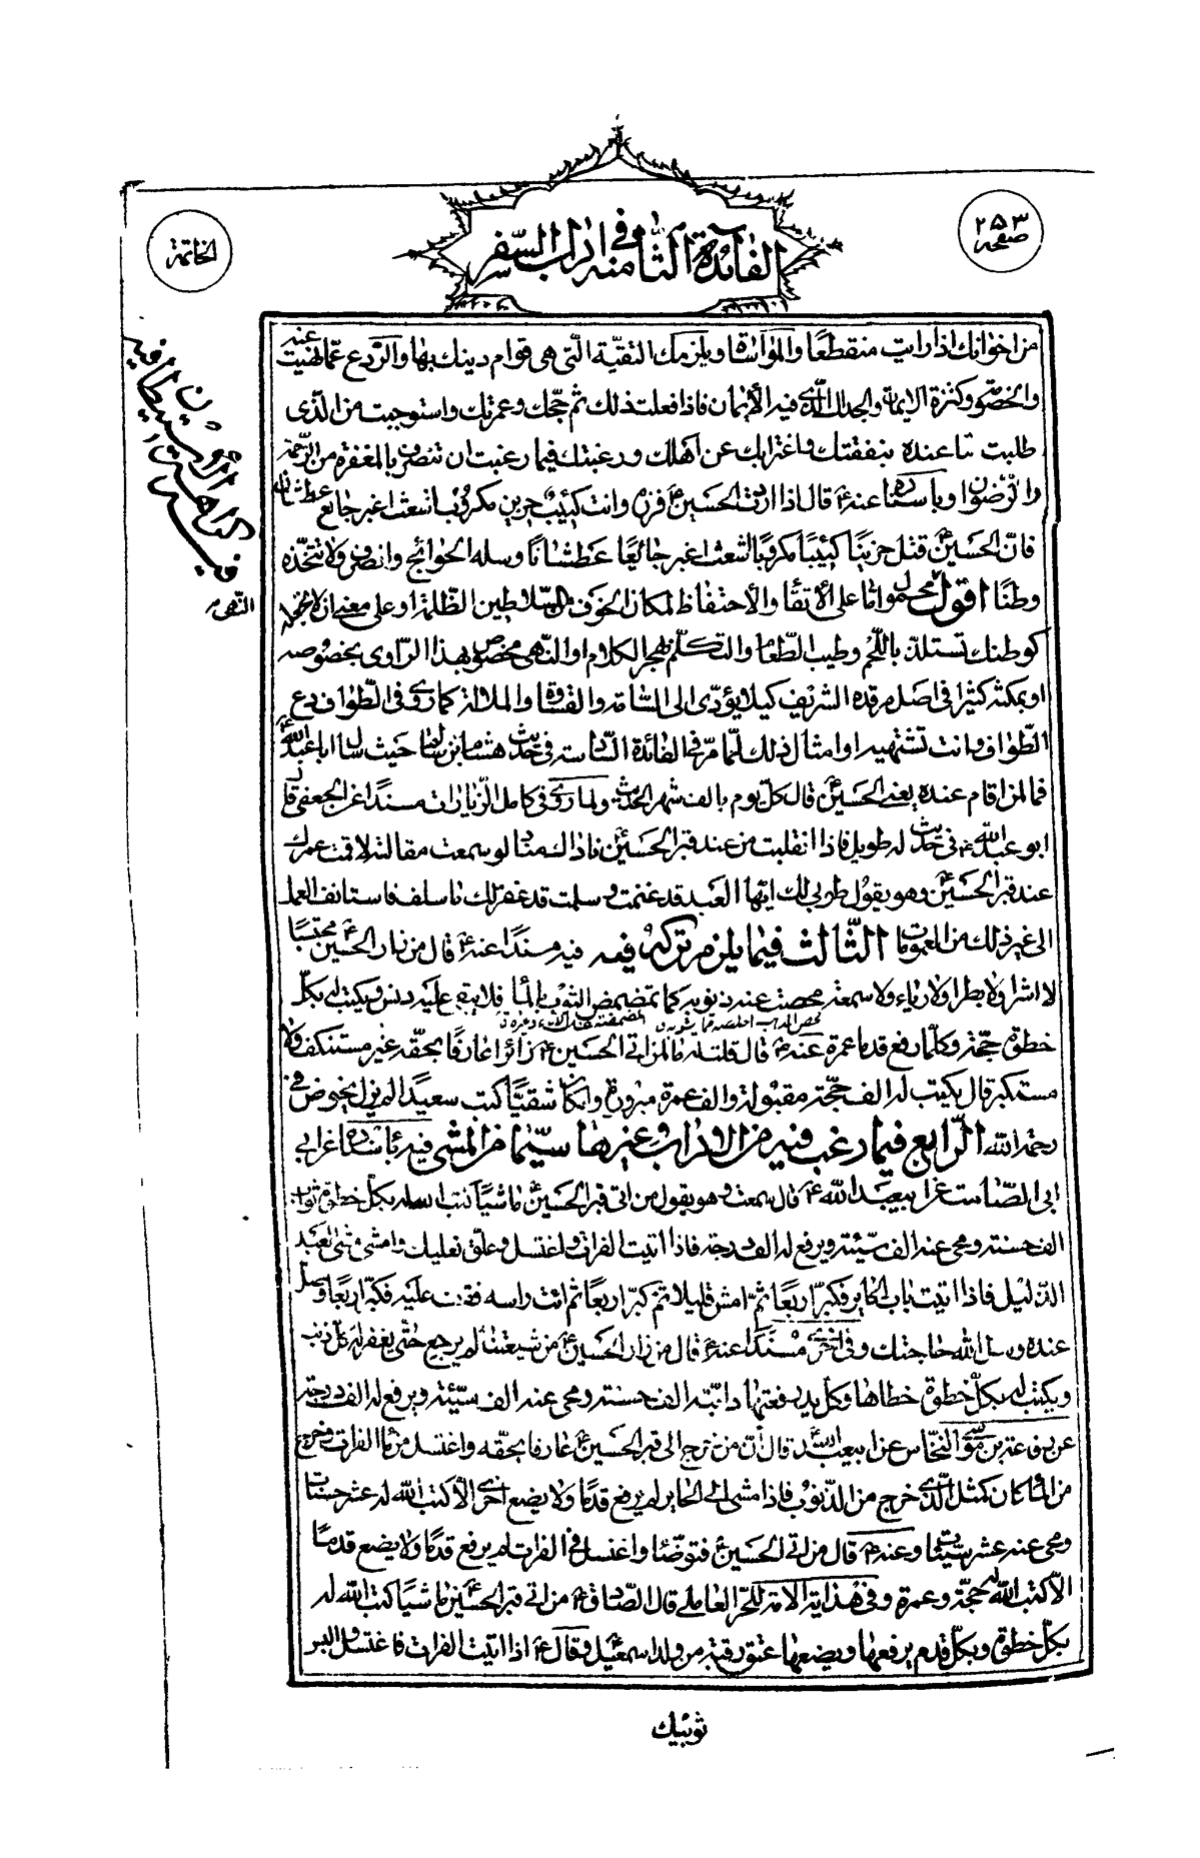 صفحه ۲۵۳
الفائدة الثامنة في اداب السفر
الخاتمة
من اخوانك اذا رايت منقطعًا والمواساة ويلزمك التقيّة الّتي هي قوام دينك بها والوَرَع عمّا نهيت عنه
والخصومة وكثرة الايمان والجدال الّذي فيه الأيمان فاذا فعلت ذلك تم حجّك وعمرتك واستوجبت من الّذي
طلبت ما عنده بنفقتك واغترابك عن اهلك ورغبتك فيما رغبت ان تنصرف بالمغفرة من الرّحمة
والرّضوان وباسناده عنه ع قال اذا اردت الحسين ع فزره وانت كئيب حزين مكروب اشعث اغبر جائع عطشان
فان الحسين ع قتل حزينًا كئيبًا مكروبًا اشعث اغبر جائعًا عطشانًا وسله الحوائج وانصرف ولا تتّخذه
وطنًا اقول محمول امّا على الأتقاء والأحتفاظ لمكان الخوف من سلاطين الظّلمة او على معنى ان لا تجعله
كوطنك تستلذ باللّحم وطيب الطّعام والتكلّم بهجر الكلام او النّهي مخصوص بهذا الرّاوي بخصوصه
او بمكثه كثيرا في اصل مرقده الشريف كيلا يؤدّي الى السّامة والقسوة والملالة كما روي في الطّواف دع
الطّواف وانت تشتهيه او امثال ذلك لما مرّ في الفائدة السّادسة في حديث هشام بن سالم حيث سال ابا عبد الله ع
فما لمن اقام عنده يعني الحسين ع قال كلّ يوم بالف شهر الحديث ولما روي في كامل الزّيارات مسندًا عن الجعفي قال
ابو عبد الله ع في حديث له طويل فاذا انقلبت من عند قبر الحسين ع ناداك مناد لو سمعت مقالته لاقمت عمرك
عند قبر الحسين ع وهو يقول طوبى لك ايّها العبد قد غنمت وسلمت قد غفر لك ما سلف فاستانف العمل
الى غير ذلك من العمومات الثّالث فيما يلزم تركه فيه ففيه مسندًا عنه ع قال من زار الحسين ع محتسبًا
لا اشرا ولا بطرا ولا رياء ولا سمعة محصت عنه ذنوبه كما تمضمض الثوب بالماء فلا يبقى عليه دنس ويكتب له بكلّ
خطوة حجّة وكلّما رفع قدما عمرة عنه ع قال قلت له ما لمن اتى الحسين ع زائرا عارفًا بحقّه غير مستنكف ولا
مستكبر قال يكتب له الف حجّة مقبولة والف عمرة مبرورة وان كان شقيًّا كتب سعيدًا ولم يزل يخوض في
رحمة الله الرّابع فيما رغب فيه من الاداب وغيرها سيّما من المشي فيه باسناده عن ابي
ابي الصّامت عن ابي عبد الله ع قال سمعته وهو يقول من اتى قبر الحسين ع ماشيًا كتب الله له بكلّ خطوة
الف حسنة ومحى عنه الف سيّئة ويرفع له الف درجة فاذا اتيت الفرات فاغتسل وعلّق نعليك وامش مشى العبد
الذّليل فاذا اتيت باب الحاير فكبّر اربعًا ثمّ امش قليلا ثم كبّر اربعًا ثم ائت راسه فقف عليه فكبّر اربعًا وصلّ
عنده وسل الله حاجتك وفي اخرى مسندًا عنه ع قال من زار الحسين ع من شيعتنا لم يرجع حتّى يغفر له كلّ ذنب
ويكتب له بكلّ خطوة خطاها وكل يد رفعتها دابّته الف حسنة ومحى عنه الف سيّئة ويرفع له الف درجة
عن رفاعة بن موسى النخّاس عن ابي عبد الله ع قال ان من خرج الى قبر الحسين ع عارفا بحقّه واغتسل من ماء الفرات وخرج
من الماء كان كمثل الّذي خرج من الذّنوب فاذا مشى الى الحاير لم يرفع قدمًا ولا يضع اخرى الا كتب الله له عشر حسنات
ومحى عنه عشر سيّئات وعنه ع قال من اتى الحسين ع فتوضّأ واغتسل في الفرات لم يرفع قدمًا ولا يضع قدمًا
الا كتب الله له حجّة وعمرة وفي هداية الامة للحرّ العاملي قال الصّادق ع من اتى قبر الحسين ع ماشيًا كتب الله له
بكلّ خطوة وبكلّ قدم يرفعها ويضعها عتق رقبة من ولد اسمعيل وقال ع اذا اتيت الفرات فاغتسل والبس
ثوبيك